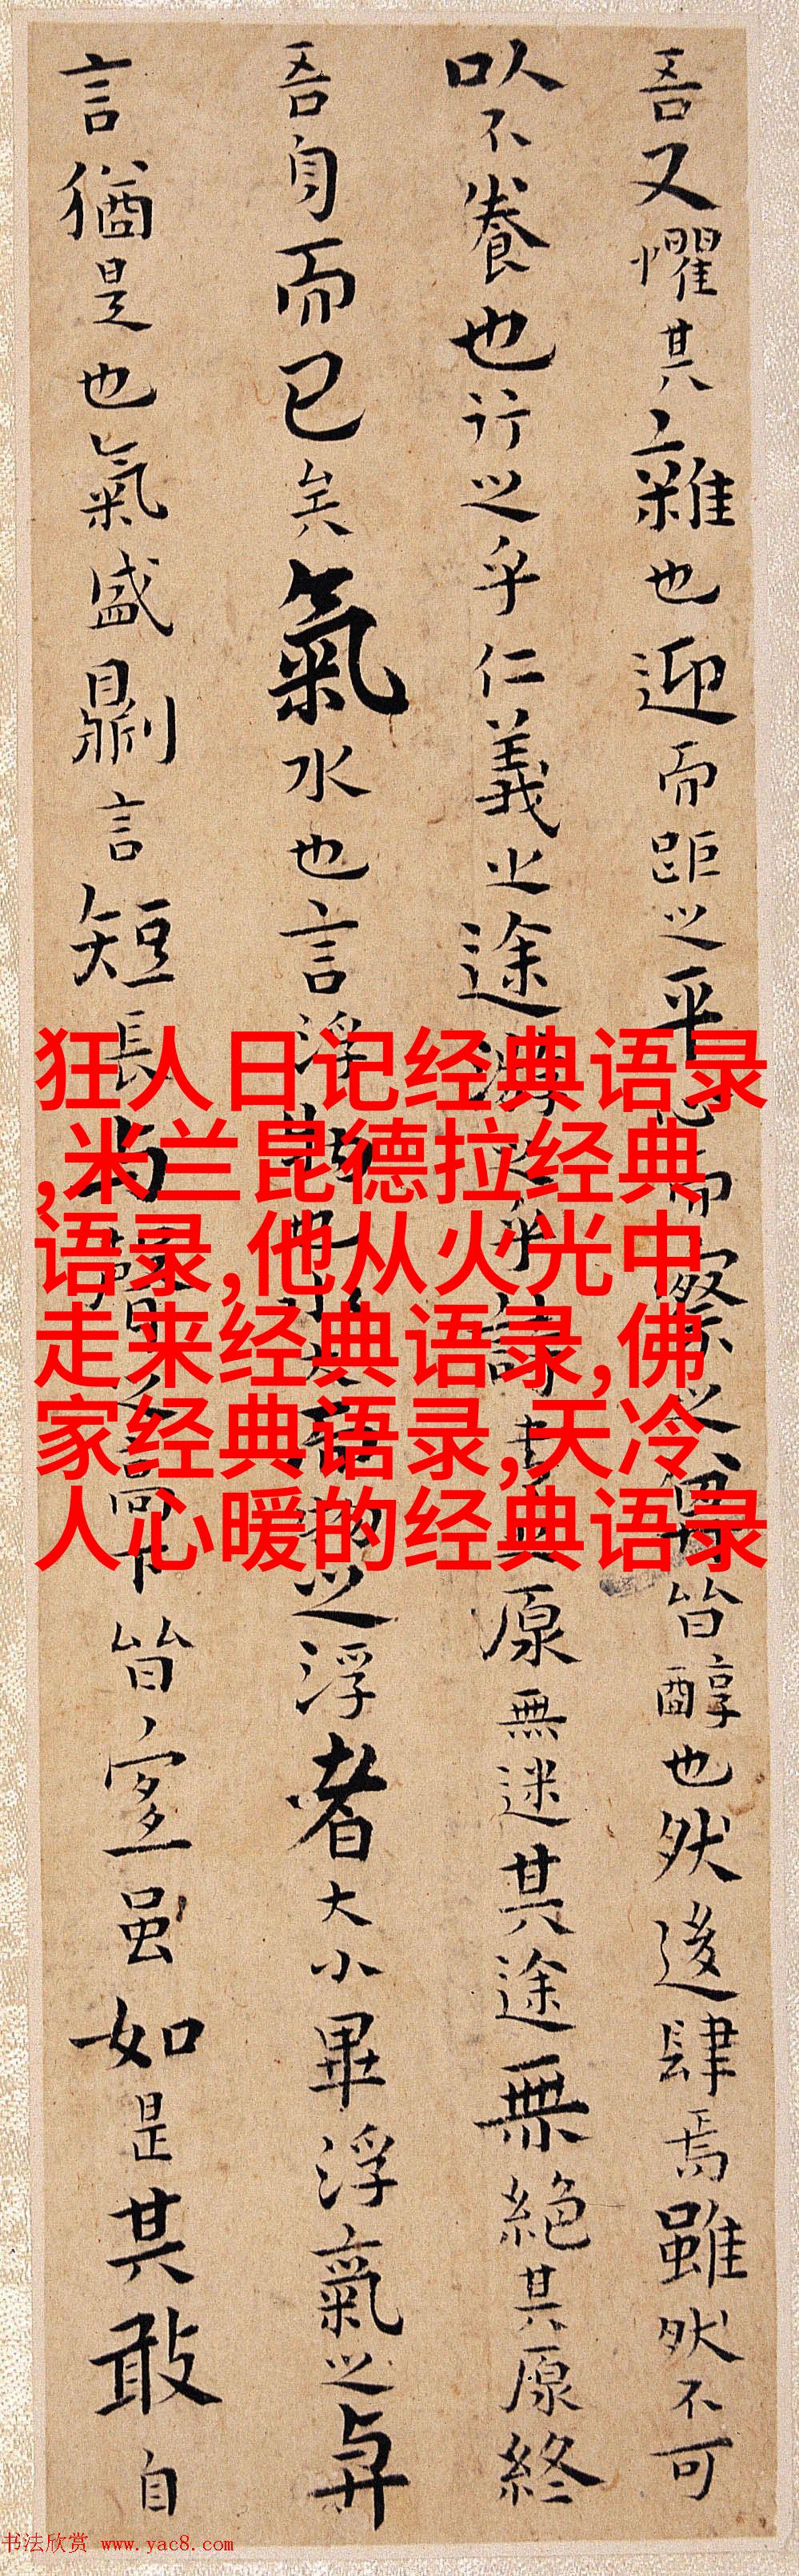 吾又懼其雜也迎而距之平心而察之皆醇也然後肆焉雖然不可
以不養也行之乎仁義之途游之乎詩書之原無迷其途無絕其原終
吾身而已矣氣水也言浮物也水大而物之浮者大小畢浮氣之與
言猶是也氣盛則言短長與聲之高下皆宜虽如是其敢自
狂人日记经典语录
,米兰昆德拉经典
语录,他从火光中
走来经典语录,佛
家经典语录,天冷
人心暖的经典语录
书法欣赏 www.yac8.com